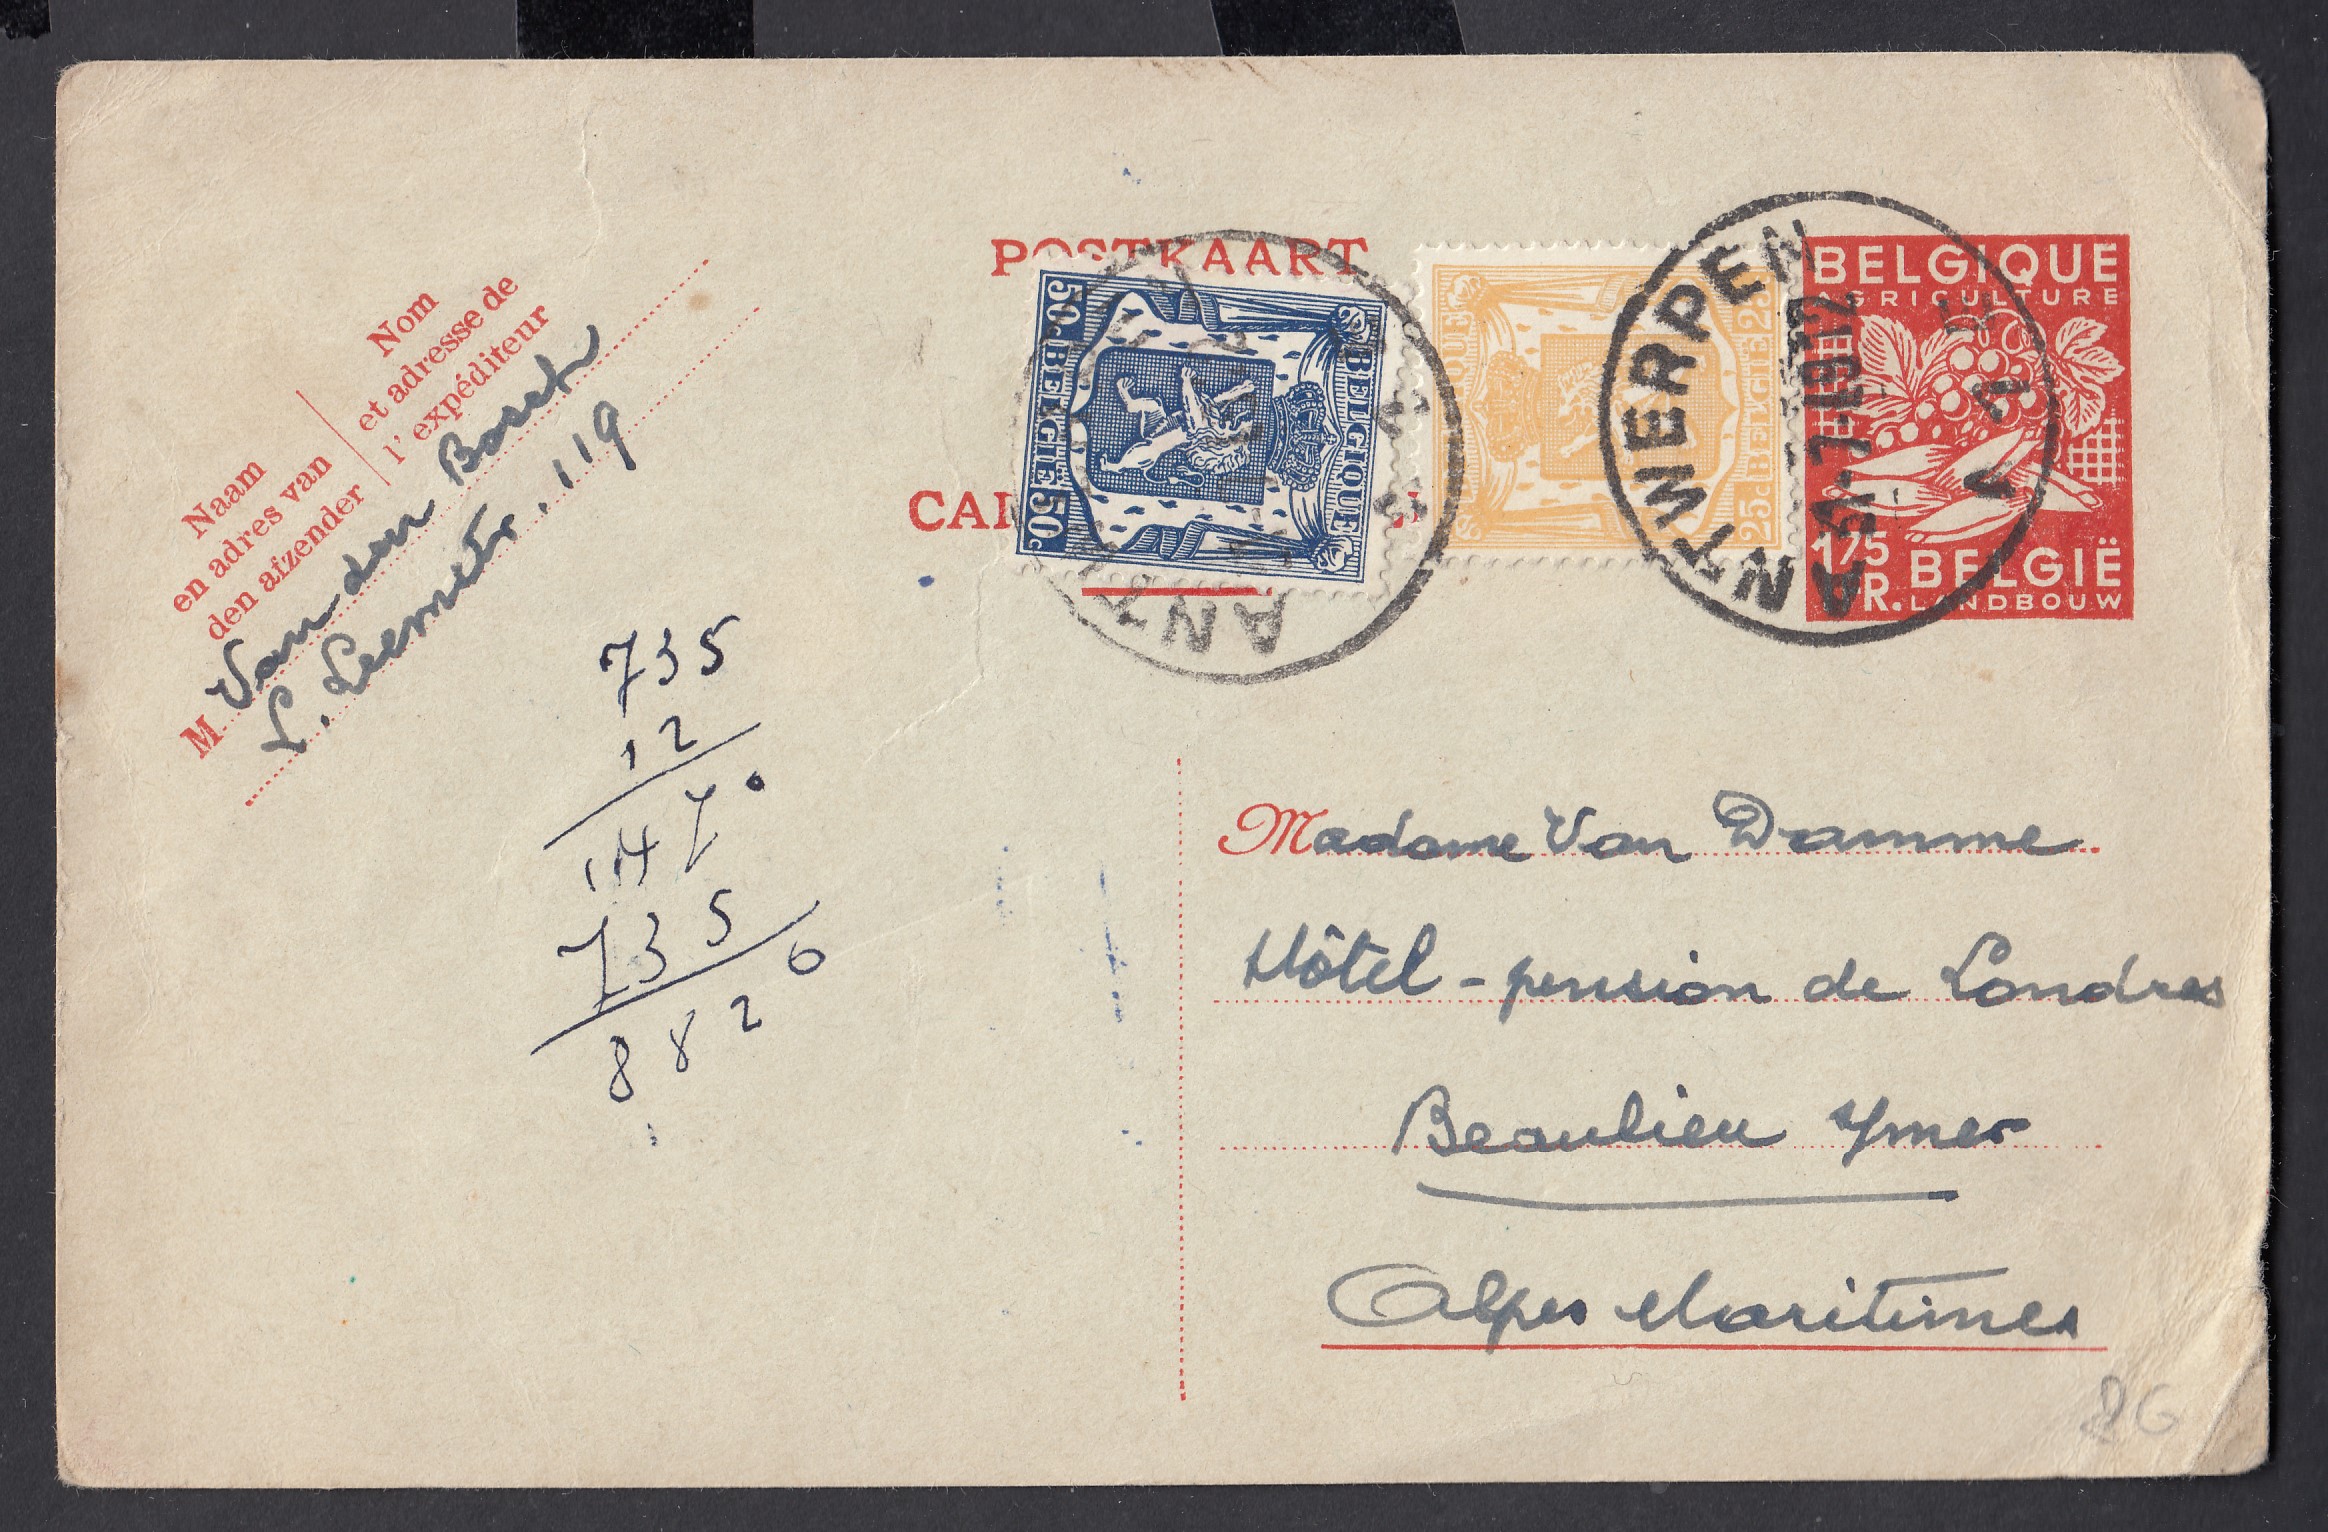 Naam
en adres van
den afzender
Nom
et adresse de
l'expéditeur
M. Van den Bosch
L. Leemstr. 119
POSTKAART
50c BELGIE 50c
BELGIQUE
25c BELGIE 25c
ANTWERPEN
ANTW
BELGIQUE
AGRICULTURE
1,75
FR. BELGIË
LANDBOUW
735
12
1470
735
8820
Madame Van Damme
Hôtel - pension de Londres
Beaulieu s/mer
Alpes Maritimes